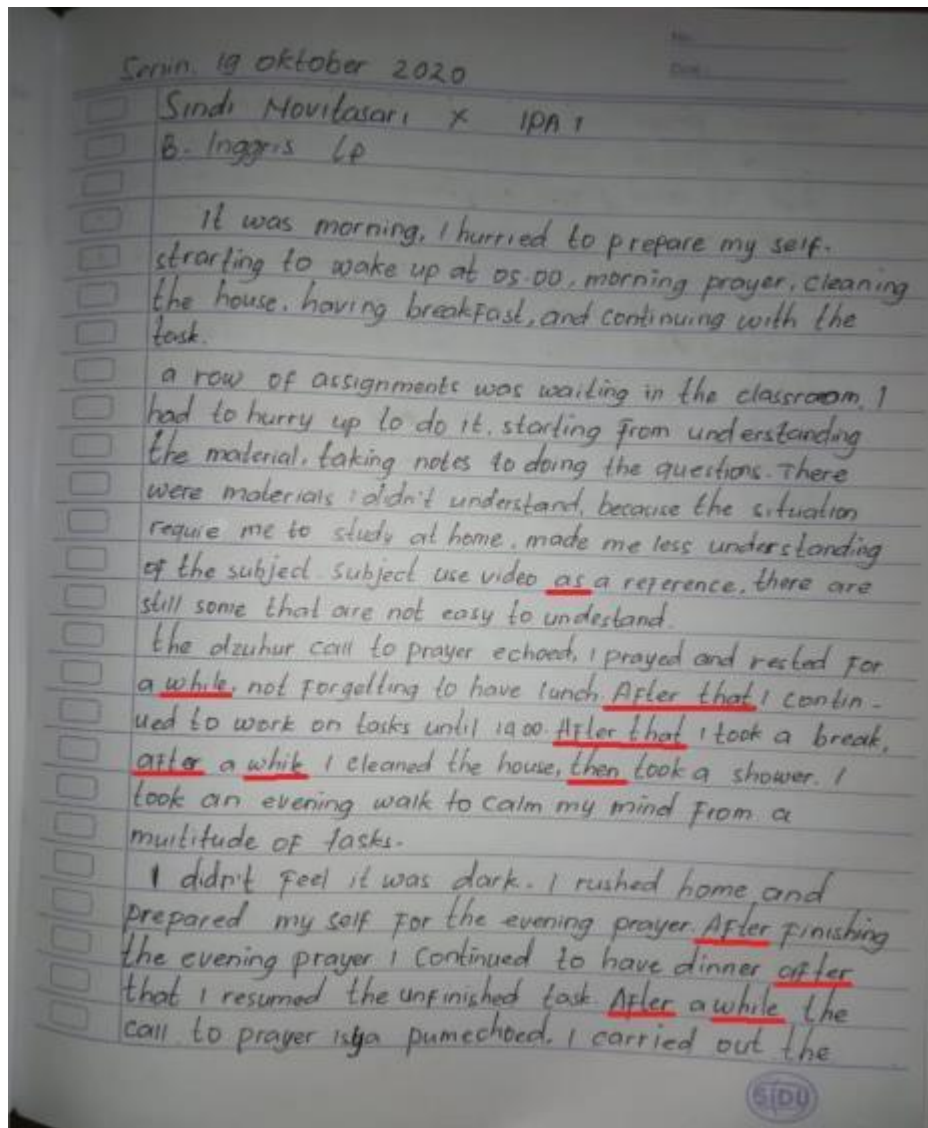 No.
Date :
Senin, 19 oktober 2020
Sindi Novitasari X IPA 1
B. Inggris LP
It was morning, I hurried to prepare my self.
strarting to wake up at 05.00, morning prayer, cleaning
the house, having breakfast, and continuing with the
task.
a row of assignments was waiting in the classroom, I
had to hurry up to do it, starting from understanding
the material, taking notes to doing the questions. There
were materials i didn't understand, because the situation
requie me to study at home, made me less understanding
of the subject. Subject use video as a reference, there are
still some that are not easy to undestand.
the dzuhur call to prayer echoed, I prayed and rested for
a while, not forgetting to have lunch. After that I contin-
ued to work on tasks until 14.00. After that I took a break,
after a while I cleaned the house, then took a shower. I
took an evening walk to calm my mind from a
multitude of tasks.
I didn't feel it was dark. I rushed home and
prepared my self for the evening prayer. After finishing
the evening prayer I continued to have dinner after
that I resumed the unfinished task. After a while the
call to prayer isya pumechoed, I carried out the
SIDU